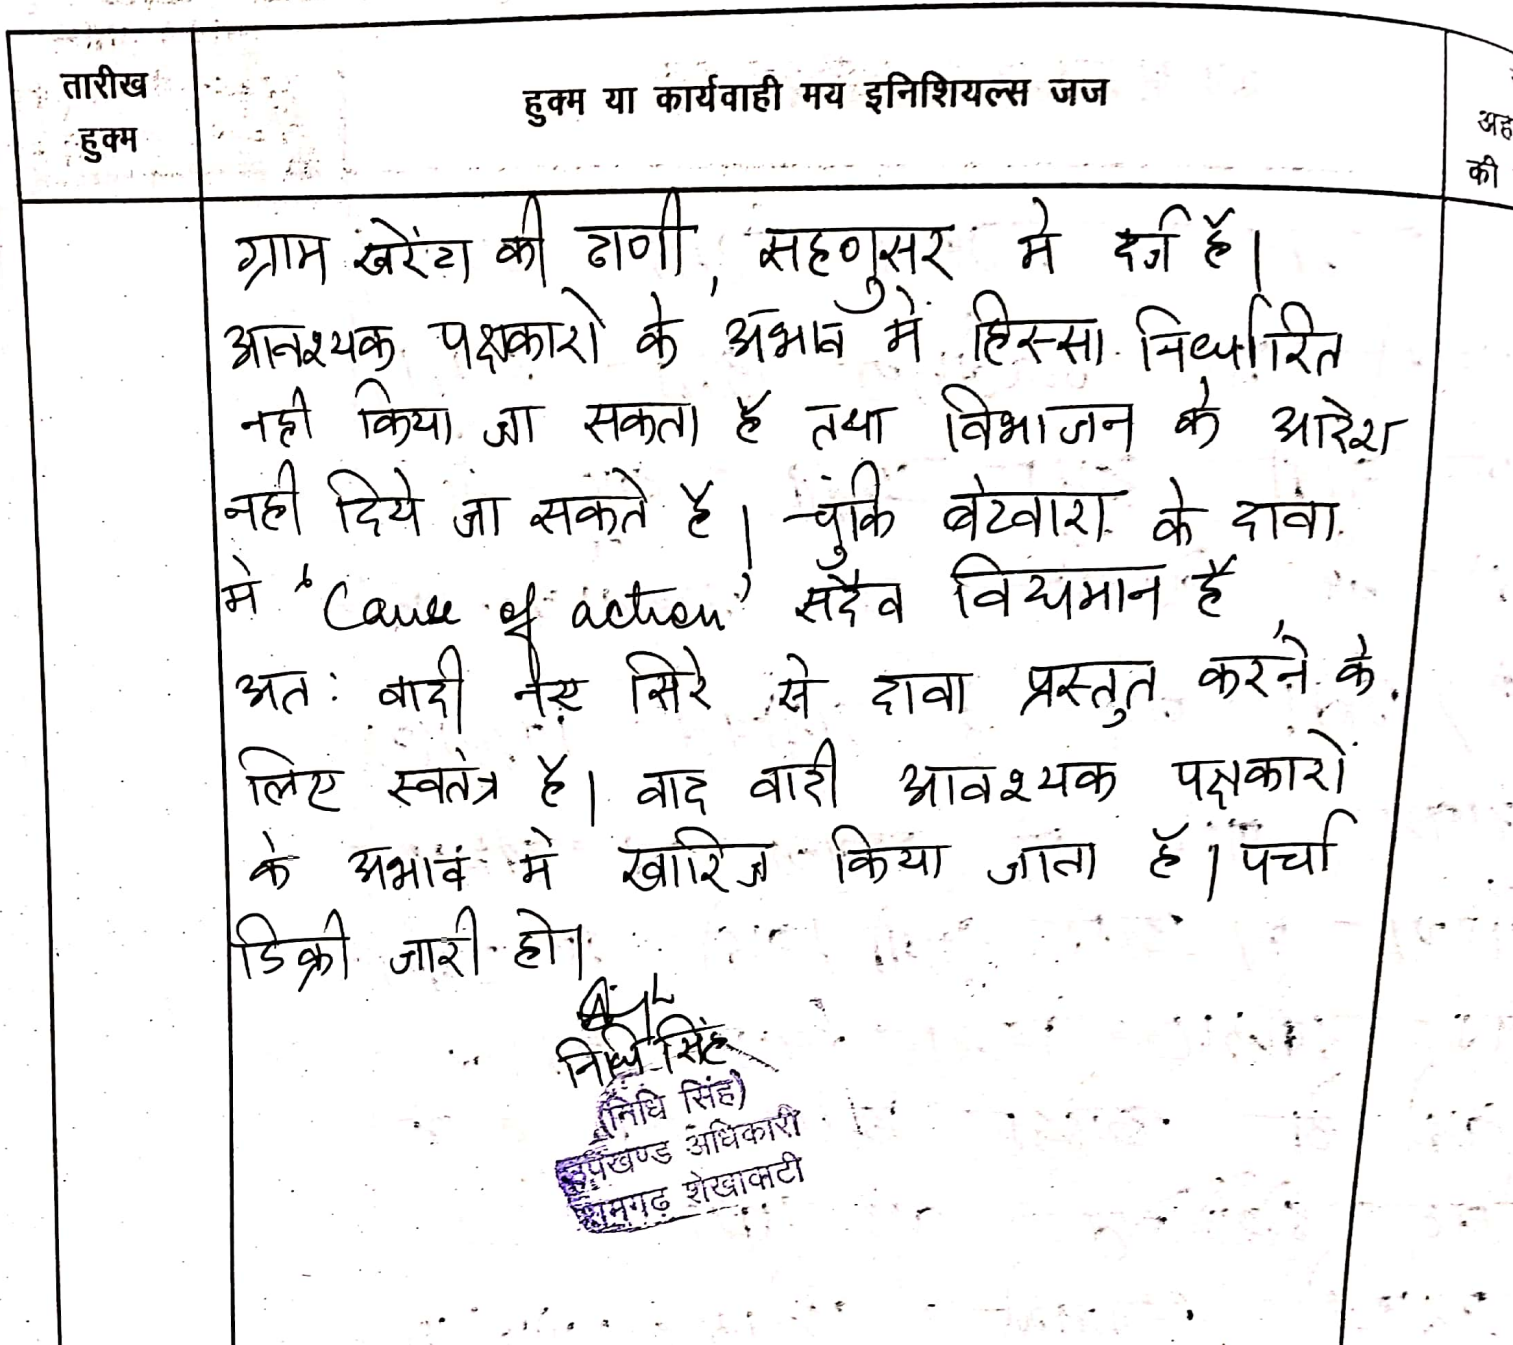 तारीख
हुक्म
हुक्म या कार्यवाही मय इनिशियल्स जज
अह
की
ग्राम खेरेंटा की ढाणी, सहणुसर मे दर्ज है।
आवश्यक पक्षकारो के अभाव में हिस्सा निर्धारित
नही किया जा सकता है तथा विभाजन के आदेश
नही दिये जा सकते है। चुंकि बंटवारा के दावा
मे 'Cause of action' सदैव विद्यमान है,
अतः वादी नए सिरे से दावा प्रस्तुत करने के
लिए स्वतंत्र है। वाद वादी आवश्यक पक्षकारों
के अभाव मे खारिज किया जाता है। पर्चा
डिक्री जारी हो।
निधि सिंह
(निधि सिंह)
उपखण्ड अधिकारी
रामगढ़ शेखावाटी